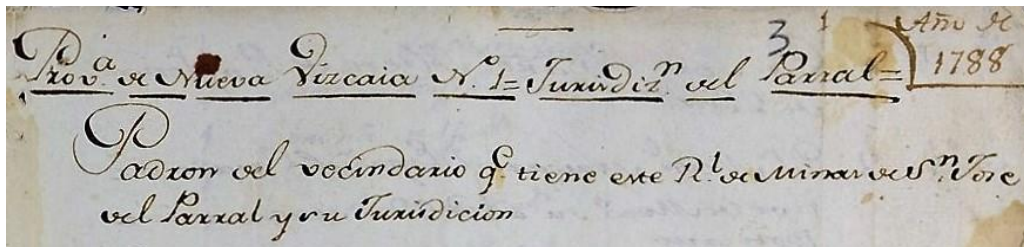 3 1 Año de
1788
Prov.ª de Nueva Vizcaia N.º 1= Jurisdiz.n del Parral=
Padron del vecindario q.e tiene este R.l de Minas de S.n Jose
del Parral y su Jurisdicion